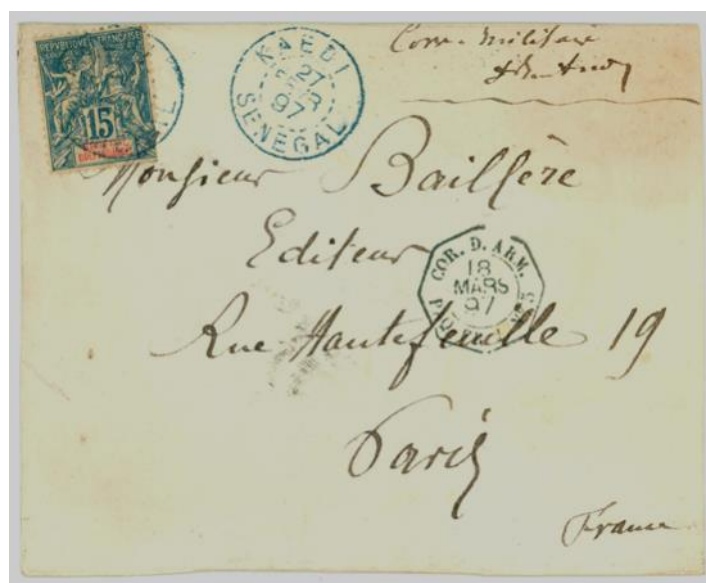 REPUBLIQUE FRANCAISE
15
KAEDI
27
97
SENEGAL
Corr. Militaire
Monsieur Baillère
Editeur
COR. D. ARM.
18
MARS
97
Nº 5
Rue Hautefeuille 19
Paris
France